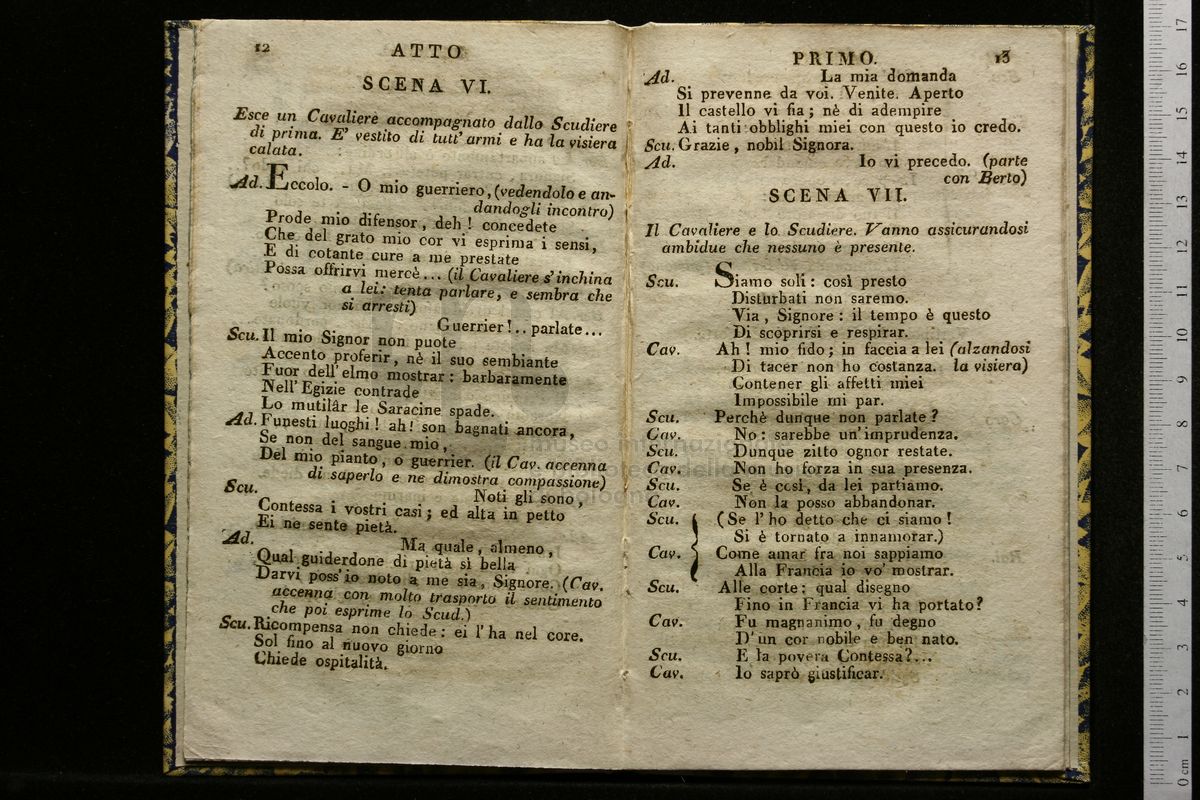 12 ATTO
SCENA VI.
Esce un Cavaliere accompagnato dallo Scudiere
di prima. E' vestito di tutt' armi e ha la visiera
calata.
Ad. Eccolo. - O mio guerriero, (vedendolo e an-
dandogli incontro)
Prode mio difensor, deh! concedete
Che del grato mio cor vi esprima i sensi,
E di cotante cure a me prestate
Possa offrirvi mercè... (il Cavaliere s'inchina
a lei: tenta parlare, e sembra che
si arresti)
Guerrier!.. parlate...
Scu. Il mio Signor non puote
Accento proferir, nè il suo sembiante
Fuor dell' elmo mostrar: barbaramente
Nell' Egizie contrade
Lo mutilâr le Saracine spade.
Ad. Funesti luoghi! ah! son bagnati ancora,
Se non del sangue mio,
Del mio pianto, o guerrier. (il Cav. accenna
di saperlo e ne dimostra compassione)
Scu. Noti gli sono,
Contessa i vostri casi; ed alta in petto
Ei ne sente pietà.
Ad. Ma quale, almeno,
Qual guiderdone di pietà sì bella
Darvi poss' io noto a me sia, Signore. (Cav.
accenna con molto trasporto il sentimento
che poi esprime lo Scud.)
Scu. Ricompensa non chiede: ei l' ha nel core.
Sol fino al nuovo giorno
Chiede ospitalità.
PRIMO. 13
Ad. La mia domanda
Si prevenne da voi. Venite. Aperto
Il castello vi fia; nè di adempire
Ai tanti obblighi miei con questo io credo.
Scu. Grazie, nobil Signora.
Ad. Io vi precedo. (parte
con Berto)
SCENA VII.
Il Cavaliere e lo Scudiere. Vanno assicurandosi
ambidue che nessuno è presente.
Scu. Siamo soli: così presto
Disturbati non saremo.
Via, Signore: il tempo è questo
Di scoprirsi e respirar.
Cav. Ah! mio fido; in faccia a lei (alzandosi
Di tacer non ho costanza. la visiera)
Contener gli affetti miei
Impossibile mi par.
Scu. Perchè dunque non parlate?
Cav. No: sarebbe un' imprudenza.
Scu. Dunque zitto ognor restate.
Cav. Non ho forza in sua presenza.
Scu. Se è così, da lei partiamo.
Cav. Non la posso abbandonar.
Scu. (Se l' ho detto che ci siamo!
Si è tornato a innamorar.)
Cav. Come amar fra noi sappiamo
Alla Francia io vo' mostrar.
Scu. Alle corte: qual disegno
Fino in Francia vi ha portato?
Cav. Fu magnanimo, fu degno
D' un cor nobile e ben nato.
Scu. E la povera Contessa?...
Cav. Io saprò giustificar.
0 cm 1 2 3 4 5 6 7 8 9 10 11 12 13 14 15 16 17